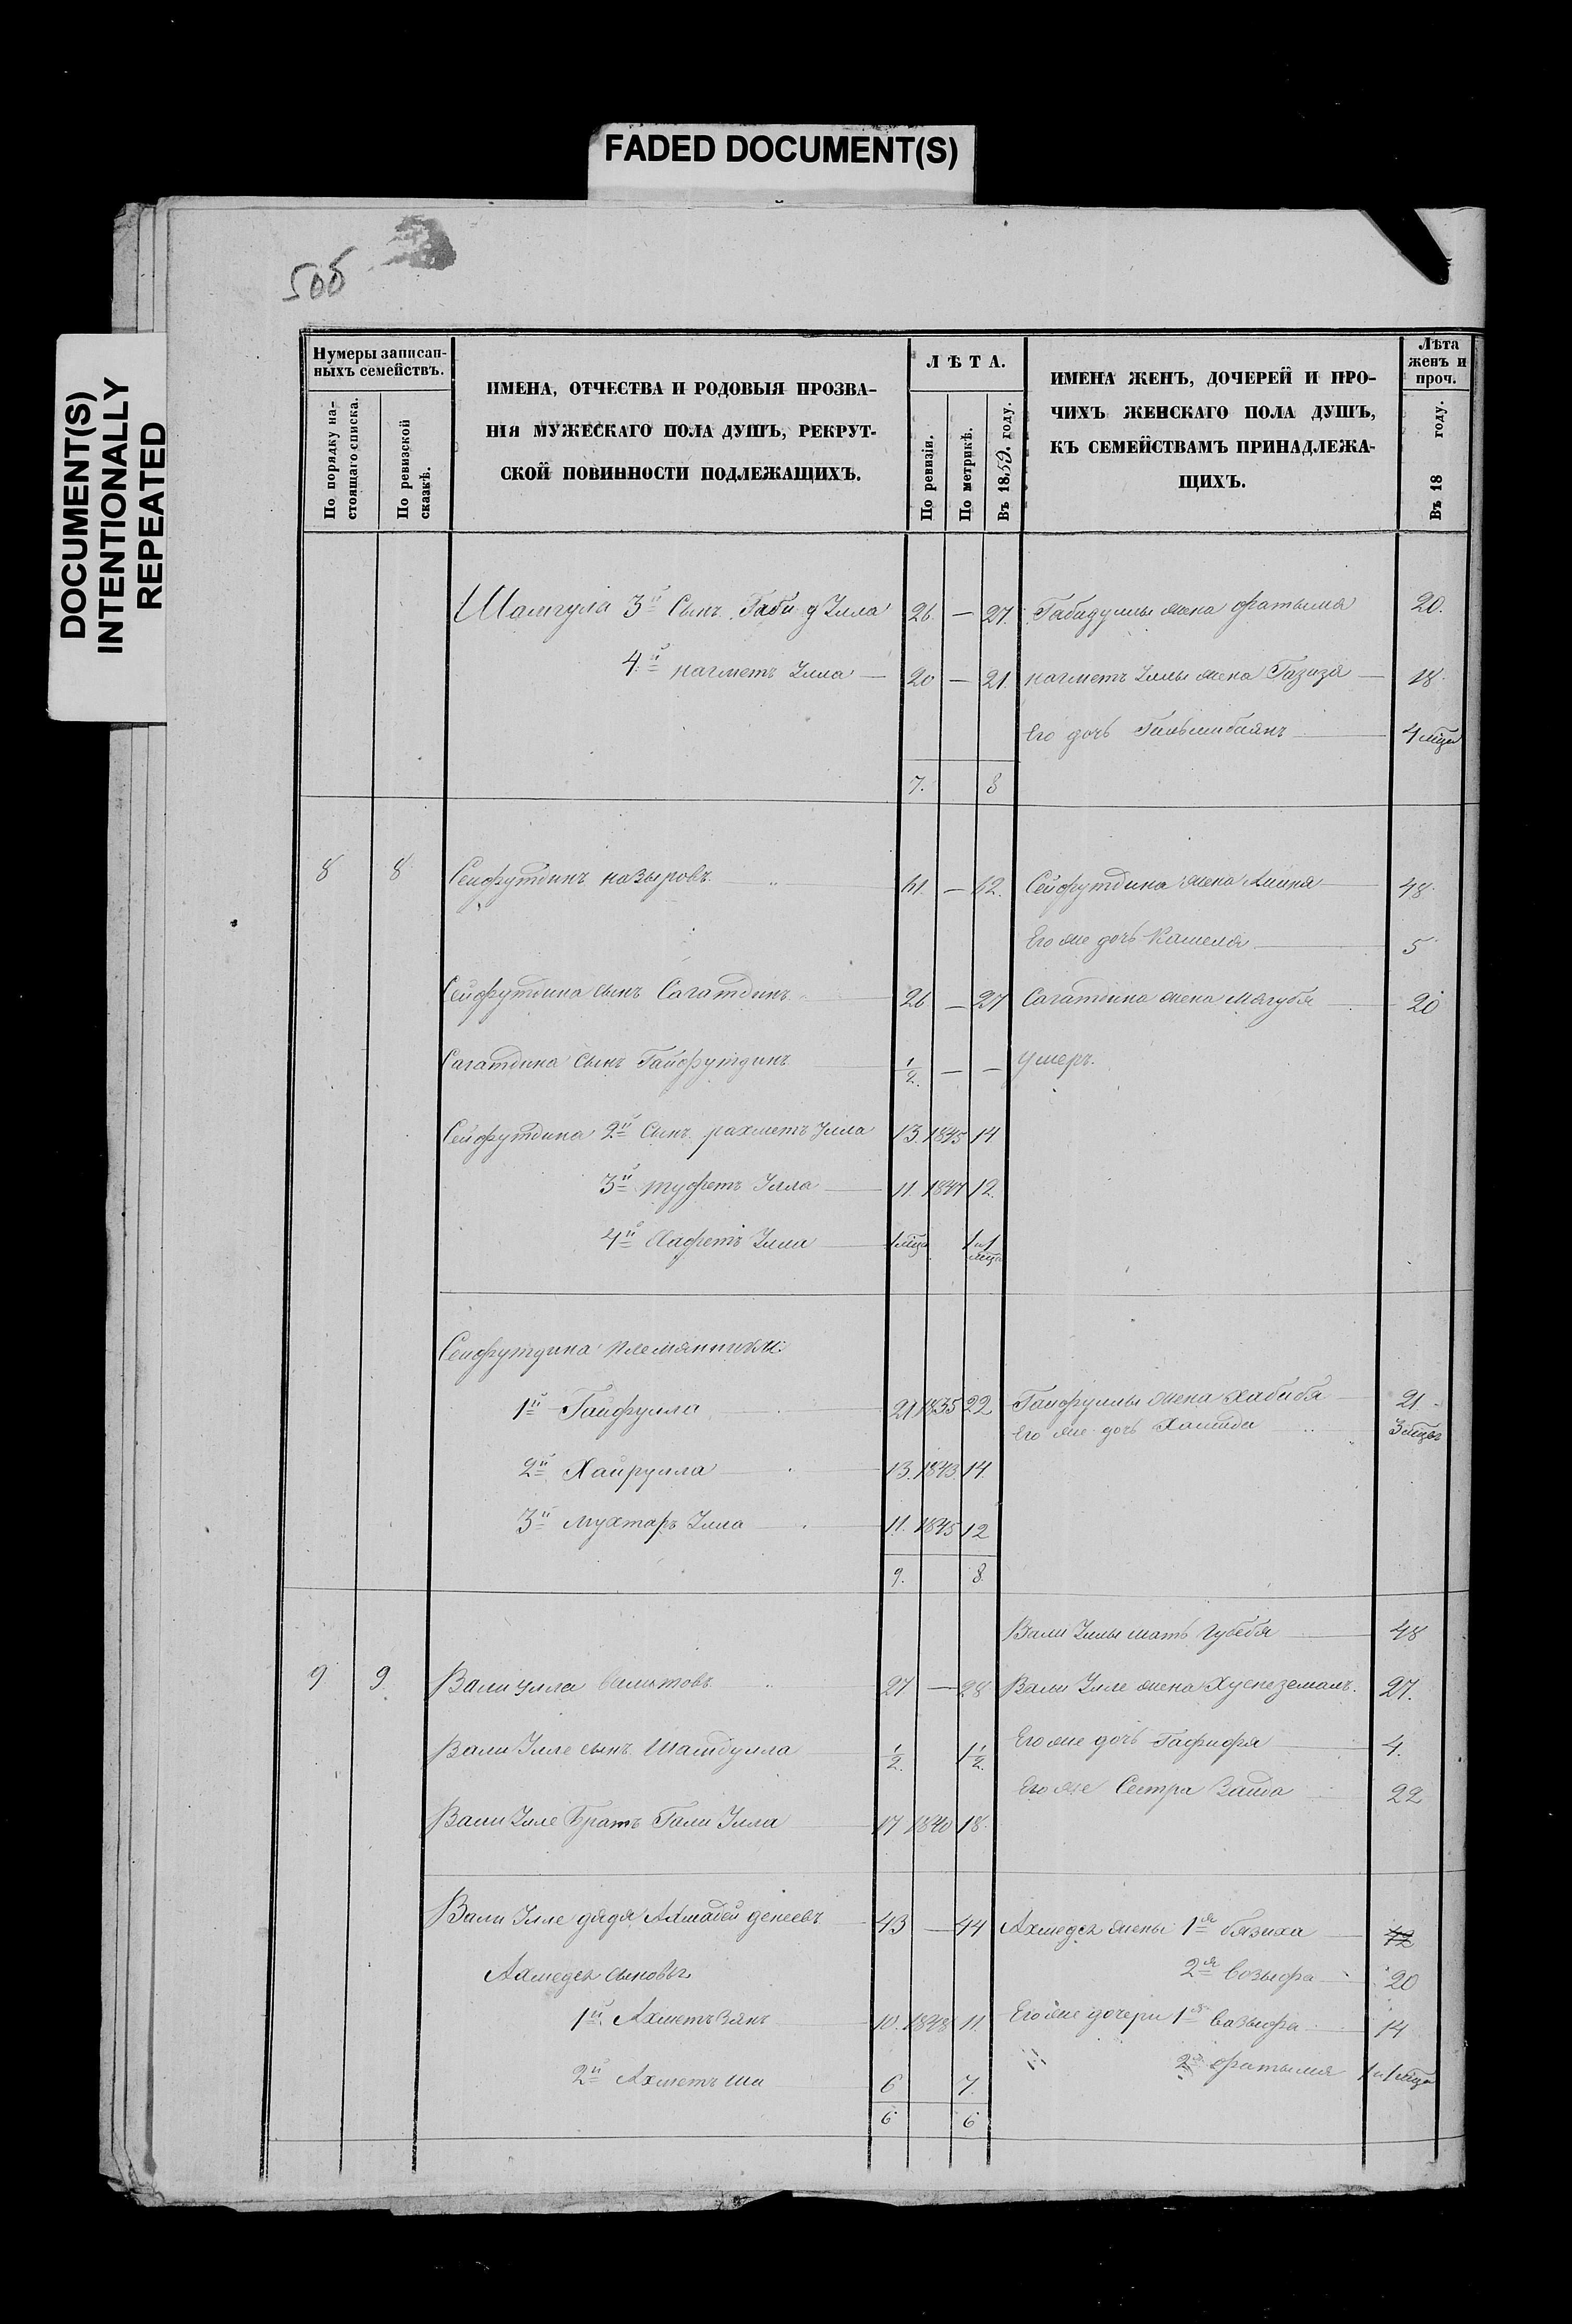 FADED DOCUMENT(S)
DOCUMENT(S)
INTENTIONALLY
REPEATED
506
Нумеры записан-
ныхъ семействъ.
По порядку на-
стоящаго списка.
По ревизской
сказкѣ.
ИМЕНА, ОТЧЕСТВА И РОДОВЫЯ ПРОЗВА-
НІЯ МУЖЕСКАГО ПОЛА ДУШЪ, РЕКРУТ-
СКОЙ ПОВИННОСТИ ПОДЛЕЖАЩИХЪ.
ЛѢТА.
По ревизіи.
По метрикѣ.
Въ 1859. году.
ИМЕНА ЖЕНЪ, ДОЧЕРЕЙ И ПРО-
ЧИХЪ ЖЕНСКАГО ПОЛА ДУШЪ,
КЪ СЕМЕЙСТВАМЪ ПРИНАДЛЕЖА-
ЩИХЪ.
Лѣта
женъ и
проч.
Въ 18 году.
Шамгула 3й Сынъ Габидулла 26 — 27. Габидуллы жена фатыма 20.
4й нагметъ Улла — 20 — 21. нагметъ Уллы жена Газиза — 18.
Его дочь 4 мѣца
7. 8
8 8 Сейфутдинъ назыровъ 61. — 62. Сейфутдина жена Амина 48.
Его же дочь Камеля 5
Сейфутдина сынъ Сагатдинъ 26 — 27 Сагатдина жена Магубя 20
Сагатдина Сынъ Гайфутдинъ 1/2. — — умеръ.
Сейфутдина 2й Сынъ рахметъ Улла 13. 1845 14
3й туфетъ Улла 11. 1847 12.
4й Хафетъ Улла 1 мѣца 1 и 1 мѣца
Сейфутдина племянники:
1й Гайфулла 21 1835 22 Гайфуллы жена Хабибя 21.
Его же дочь Хамида 3 мѣцъ
2й Хайрулла 13. 1843 14.
3й Мухтаръ Улла 11. 1845 12
9. 8.
Вали Уллы мать Губебя 48
9 9. Вали улла 27 — 28 Вали Улле жена Хуснеземалъ. 27.
Вали Улле сынъ Шамдулла 1/2. 1 1/2. Его же дочь Гафифя 4.
Его же Сестра Заида 22
Вали Улле Братъ Гали Улла 17 1840 18.
Вали Улле дядя Ахмадей денеевъ 43 — 44 Ахмедея жены 1я бязиха 42
Ахмедея сыновья 2я Возифа 20
1й Ахметъ Зянъ 10. 1848 11. Его же дочери 1я вазифа 14
2й Ахметъ ша 6 7. 2я фатымя 1 и 1 мѣца
6 6